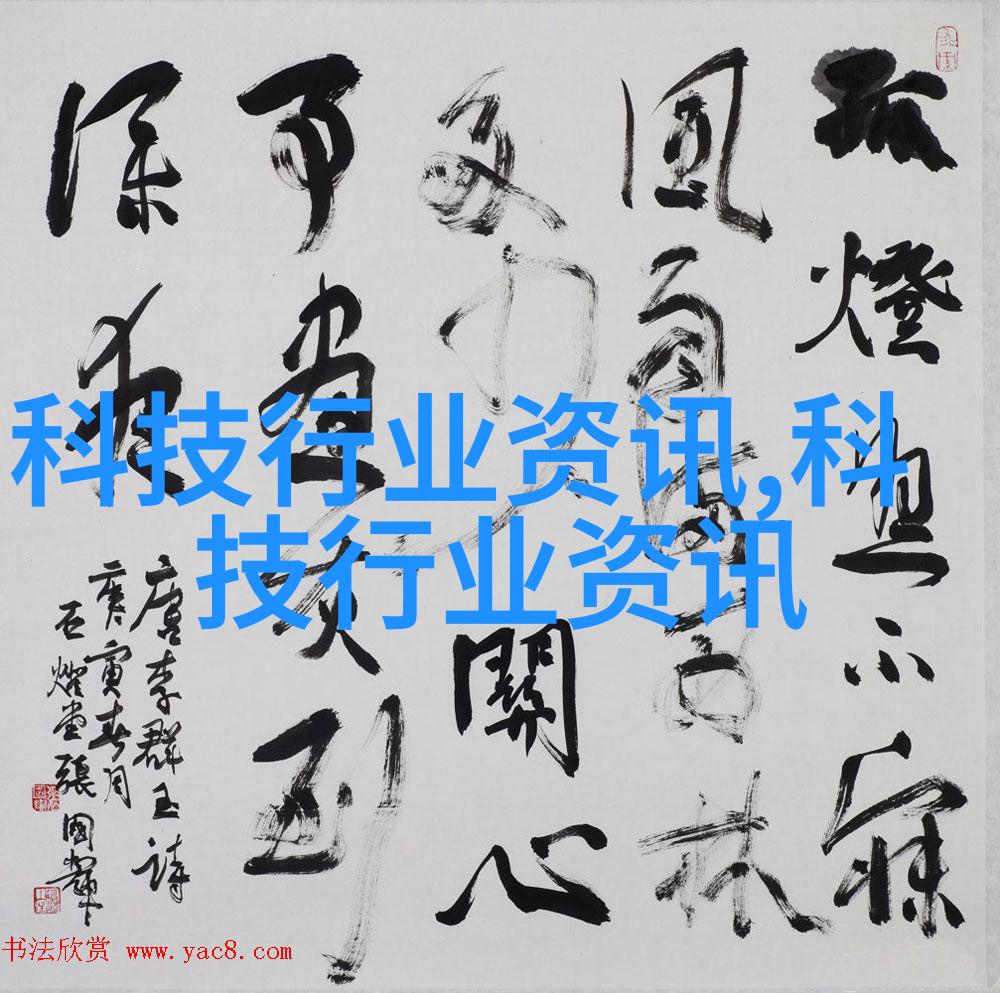 孤燈照不寐
風雨滿西林
多少關心
事書灰到
深夜
唐李群玉詩
庚寅春月
張國輝
科技行业资讯,科
技行业资讯
书法欣赏 www.yac8.com